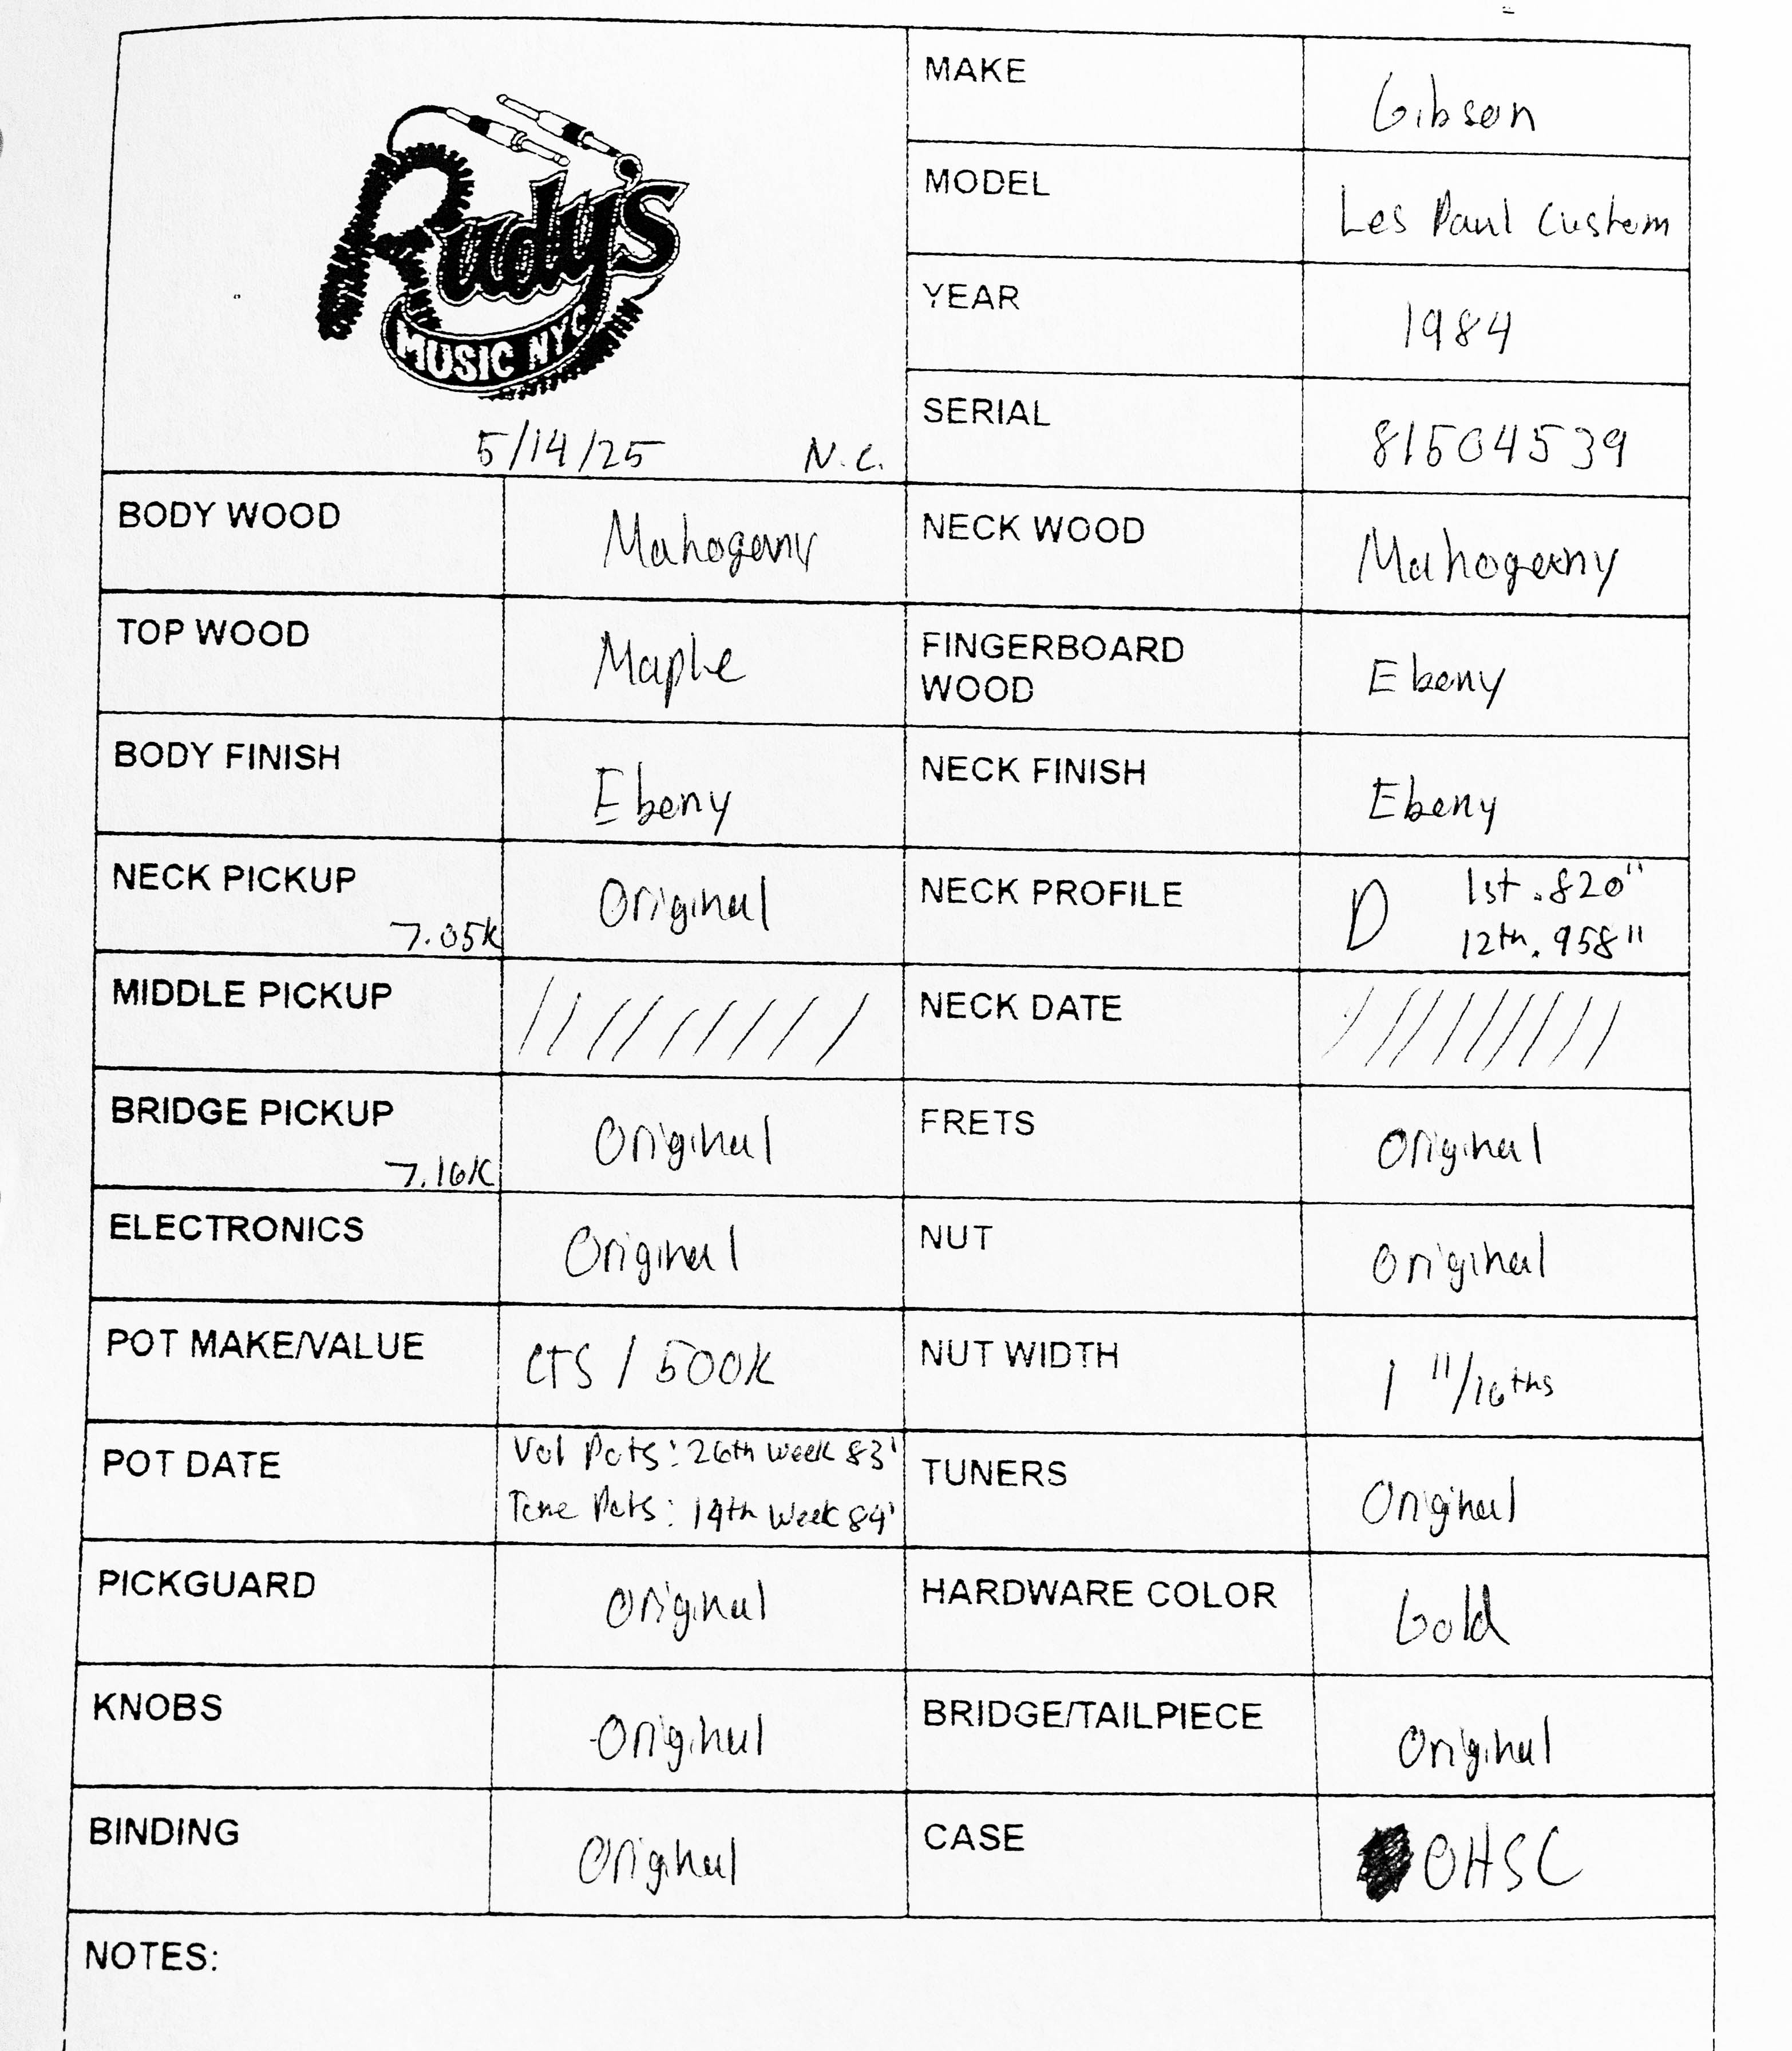 Rudy's
MUSIC NYC
5/14/25 N.C.
MAKE Gibson
MODEL Les Paul Custom
YEAR 1984
SERIAL 81504539
BODY WOOD Mahogany
NECK WOOD Mahogany
TOP WOOD Maple
FINGERBOARD
WOOD Ebony
BODY FINISH Ebony
NECK FINISH Ebony
NECK PICKUP 7.05K Original
NECK PROFILE D 1st .820"
12th .958"
MIDDLE PICKUP
NECK DATE
BRIDGE PICKUP 7.16K Original
FRETS Original
ELECTRONICS Original
NUT Original
POT MAKE/VALUE CTS / 500K
NUT WIDTH 1 11/16ths
POT DATE Vol Pots: 26th week 83'
Tone Pots: 14th week 84'
TUNERS Original
PICKGUARD Original
HARDWARE COLOR Gold
KNOBS Original
BRIDGE/TAILPIECE Original
BINDING Original
CASE OHSC
NOTES: